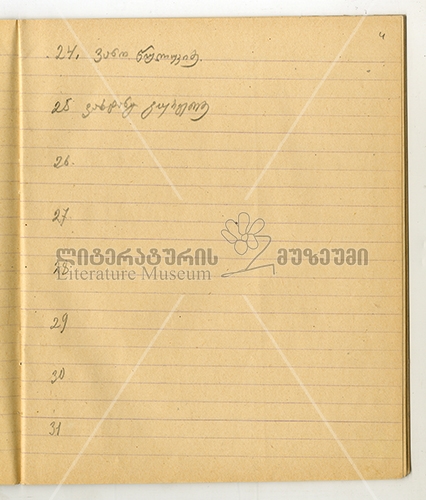 4
24. ვანო
25 ვახტანგ
26.
27
ლიტერატურის მუზეუმი
28
Literature Museum
29
30
31